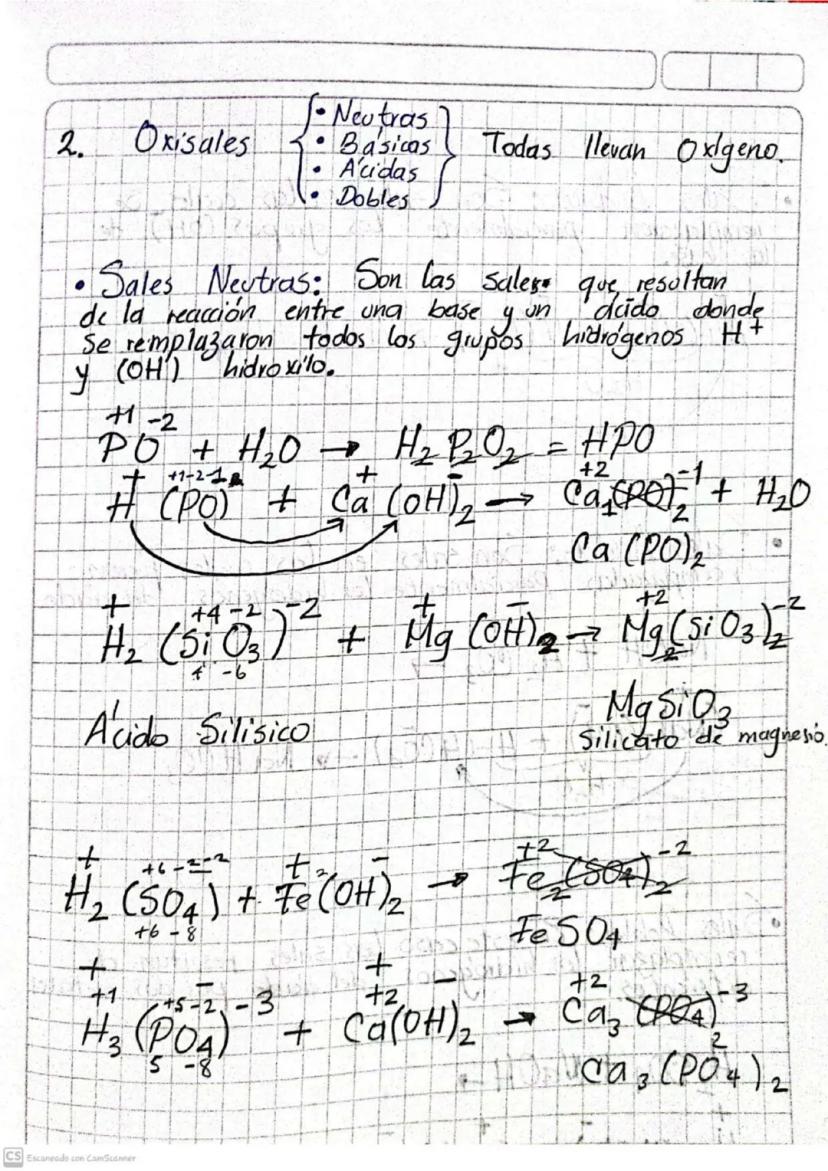 2. Oxisales { • Neutras
• Básicas
• Ácidas
• Dobles } Todas llevan Oxígeno.
• Sales Neutras: Son las sales que resultan
de la reacción entre una base y un ácido donde
se remplazaron todos los grupos hidrógenos H+
y (OH⁻) hidroxilo.
+1 -2
PO + H₂O → H₂P₂O₂ = HPO
+ +1-2-1 + - +2 -1
H (PO) + Ca (OH)₂ → Ca₁(PO)₂ + H₂O
Ca (PO)₂
+ +4 -2 -2 + - +2 -2
H₂ (SiO₃) + Mg (OH)₂ → Mg₂(SiO₃)₂
-6
MgSiO₃
Ácido Silisico
Silicato de magnesio.
+ +6 -2 -2 + 2 - +2 -2
H₂ (SO₄) + Fe (OH)₂ → Fe₂(SO₄)₂
+6 -8
FeSO₄
+ - + -
+1 +5 -2 -3 +2 +2 -3
H₃ (PO₄) + Ca(OH)₂ → Ca₃ (PO₄)₂
5 -8
Ca₃(PO₄)₂
CS Escaneado con CamScanner